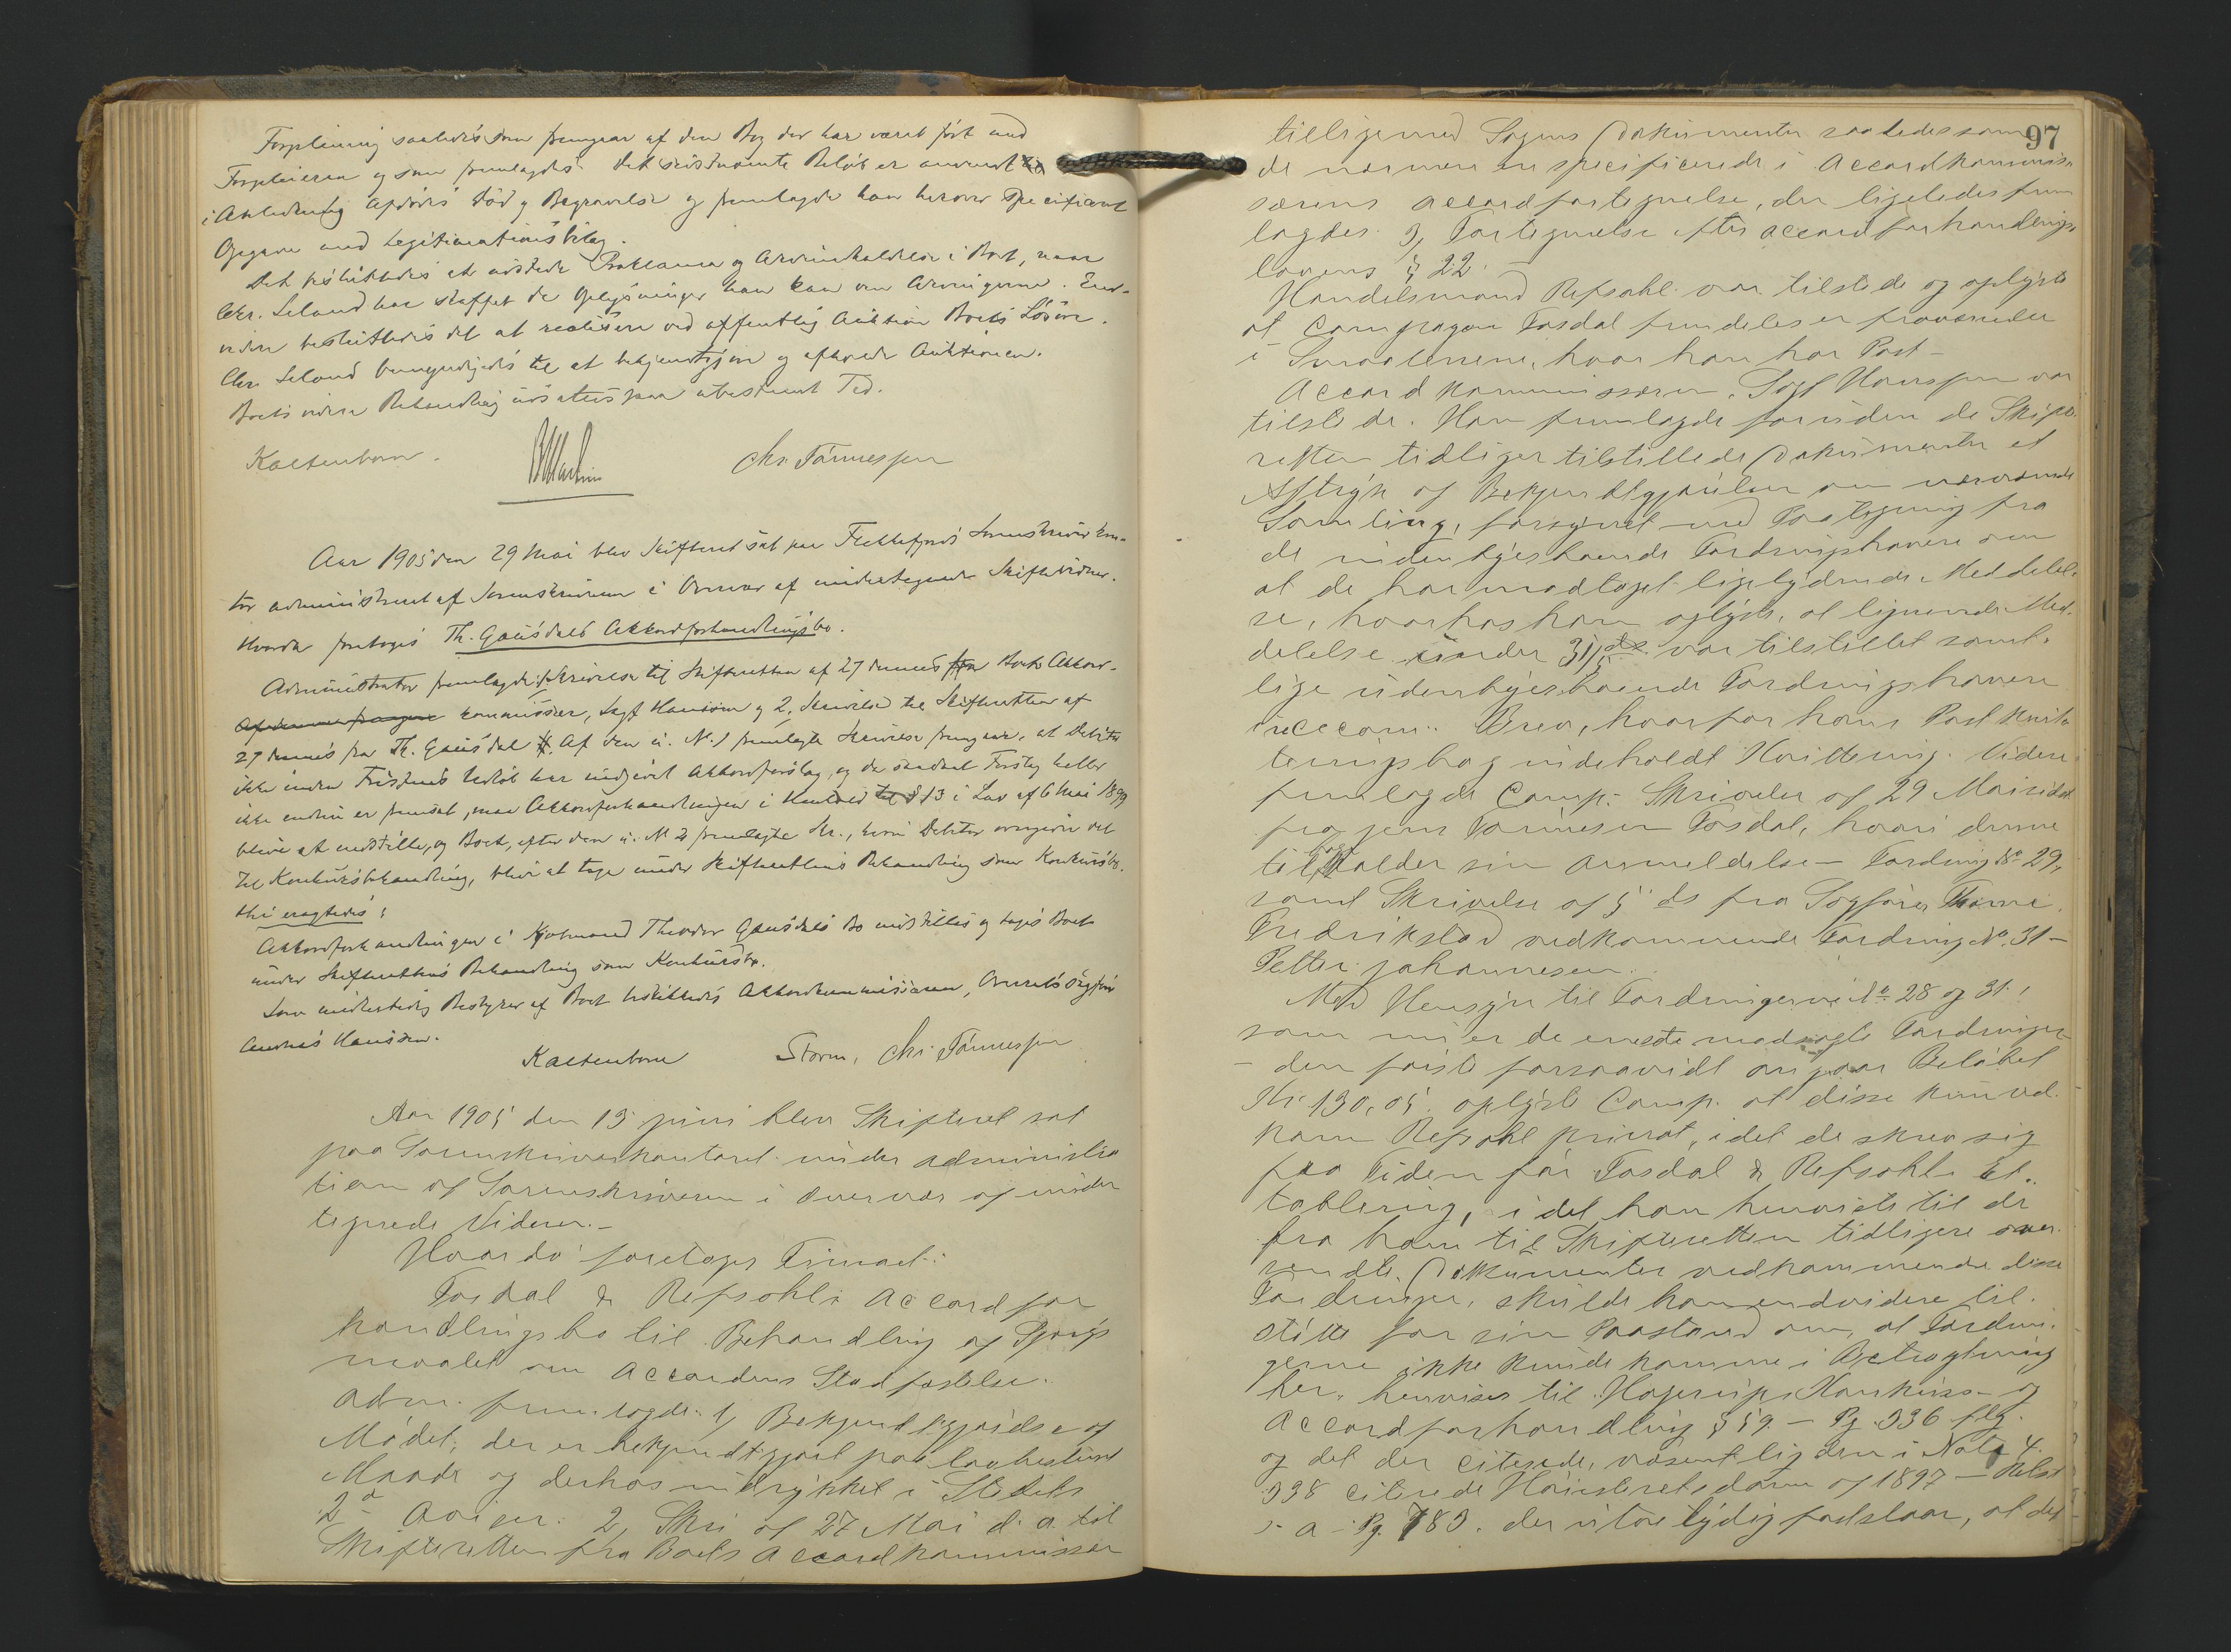 Forpleining saaledes som fremgaar af den Bog der har været ført med
Forpleieren og som fremlagdes. Det sidstnævnte Beløb er anvendt
i Anledning Afdødes Død og Begravelse og fremlagde han herover specificeret
Opgave med Legitimationsbilag.
Det besluttedes at udstede Proklama og Arveindkaldelse i Boet, naar
Chr. Seland har skaffet de Oplysninger han kan om Arvingerne. End-
videre besluttedes det at realisere ved offentlig Auktion Boets Løsøre.
Chr. Seland bemyndigedes til at bekjendtgjøre og afholde Auktionen.
Boets videre Behandling udsattes paa ubestemt Tid.
Kaltenborn. Chr. Tønnessen
Aar 1905 den 29 Mai blev Skifteret sat paa Flekkefjords Sorenskriverkon-
tor administreret af Sorenskriveren i Overvær af undertegnede Skiftevidner.
Hvorda foretoges Th. Gausdals Akkordforhandlingsbo.
Administrator fremlagde: 1. Skrivelse til Skifteretten af 27 dennes fra Boets Akkord-
kommissær, Sagf. Hanssen og 2. Skrivelse til Skifteretten af
27 dennes fra Th. Gausdal. Af den u. N. 1 fremlagte Skrivelse fremgaar, at Debitor
ikke inden Fristens Udløb har indgivet Akkordforslag, og da saadant Forslag heller
ikke endnu er fremsat, maa Akkordforhandlingen i Henhold til § 13 i Lov af 6 Mai 1899
blive at indstille, og Boet, efter den u. N. 2 fremlagte Skr., hvori Debitor overgiver det
til Konkursbehandling, blive at tage under Skifterettens Behandling som Konkursbo.
Thi eragtedes:
Akkordforhandlingen i Kjøbmand Theodor Gausdals Bo indstilles og tages Boet
under Skifterettens Behandling som Konkursbo.
Som midlertidig Bestyrer af Boet beskikkedes Akkordkommissæren, Overretssagfører
Andreas Hanssen.
Kaltenborn Storm, Chr. Tønnessen
Aar 1905 den 13 juni blev Skifteret sat
paa Sorenskriverkontoret under administra
tion af Sorenskriveren i Overvær af under
tegnede Vidner.-
Hvorda foretoges Firmaet:
Tosdal & Refsahls Accordfor
handlingsbo til Behandling af Spørgs
maalet om Accordens Stadfæstelse.
Adm. fremlagde: 1, Bekjendtgjørelse af
Mødet, der er bekjendtgjort paa lovbestemt
Maade og derhos indrykket i Stedets
2de Aviser. 2, Skr. af 27 Mai d. a. til
Skifteretten fra Boets Accordkommissær
97
tilligemed Sagens Dokumenter saaledes som
de nærmere er specificerede i Accordkommis-
særens accordfortegnelse, der ligeledes frem
lagdes. 3, Fortegnelse efter accordforhandlings
lovens § 22.
Handelsmand Refsahl var tilstede og oplyste
at Compagnon Tosdal fremdeles er fraværende
i Smaalenene, hvor han har Post-
Accordkommissæren, Sagf. Hanssen var
tilstede. Han fremlagde foruden de Skifte
retten tidligere tilstillede Dokumenter et
Aftryk af Bekjendtgjørelsen om nærværende
Samling, forsynet med Paategning fra
de indenbyesboende Fordringshavere om
at de har modtaget ligelydende Meddelel-
se, hvorhos han oplyste, at lignende Med-
delelse under 31/5 var tilstillet samt-
lige udenbyesboende Fordringshavere
i reccom. Brev, hvorfor hans Postkvit-
teringsbog indeholdt Kvittering. Videre
fremlagde Comp. Skrivelse af 29 Mai sidstl.
fra jens Tønnesen Tosdal, hvori denne
tilbagekalder sin anmeldelse - Fordring No 29,
samt Skrivelse af 5 ds fra Sagfører Thorne.
Fredrikstad vedkommende Fordring No 31 -
Petter Johannesen.
Med Hensyn til Fordringerne No 28 og 31,
som nu er de eneste modsagte Fordringer
- den første forsaavidt angaar Beløbet
Kr. 130,05. oplyste Comp. at disse kun ved-
kom Refsahl privat, idet de skrev sig
fra Tiden før Tosdal & Refsahls Et.
tablering, i det han henviste til de
fra ham til Skifteretten tidligere over-
sendte Dokumenter vedkommende disse
Fordringer, skulde han endvidere til
støtte for sin Paastand om, at Fordrin-
gerne ikke kunde komme i Betragtning
her, henvise til Hagerups Konkurs- og
Accordforhandling § 59. - Pg. 336 flg.
og det der citerede, væsentlig den i Note 4.
338 citerede Høiesteretsdom af 1897 - Retst
s. a - Pg. 783. der utvetydig fastslaar, at det